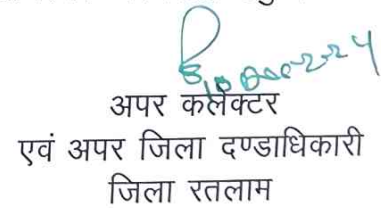 अपर कलेक्टर
एवं अपर जिला दण्डाधिकारी
जिला रतलाम